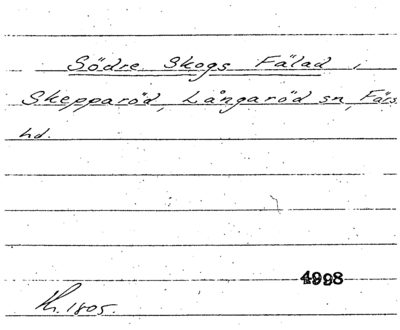 Södre Skogs Fälad,
Skepparöd, Långaröd sn, Färs
hd.
4998
Kr. 1805.